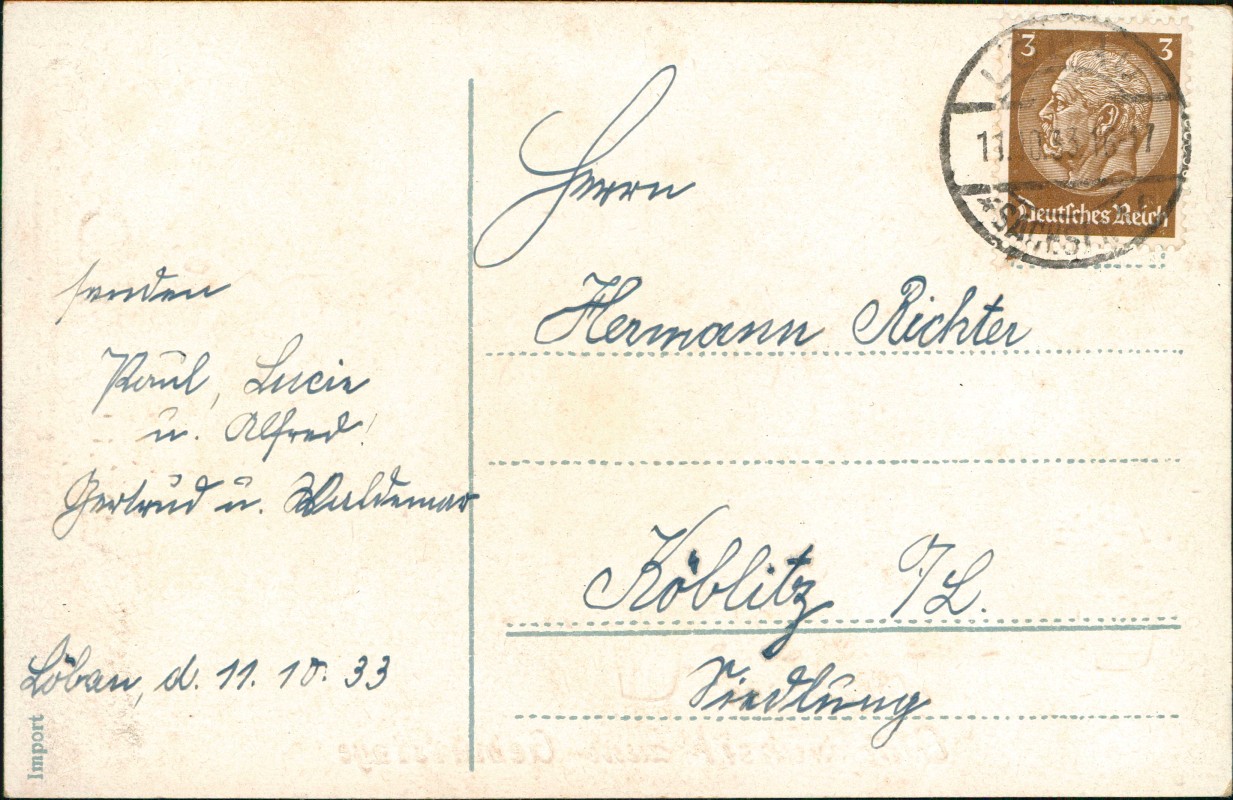 senden
Paul, Lucie
u. Alfred!
Gertrud u. Waldemar
Löbau, d. 11. 10. 33
Import
Herrn
Hermann Richter
Köblitz i/L.
Siedlung
3 3
Deutsches Reich
11.10.33.16-17
*SACHSEN